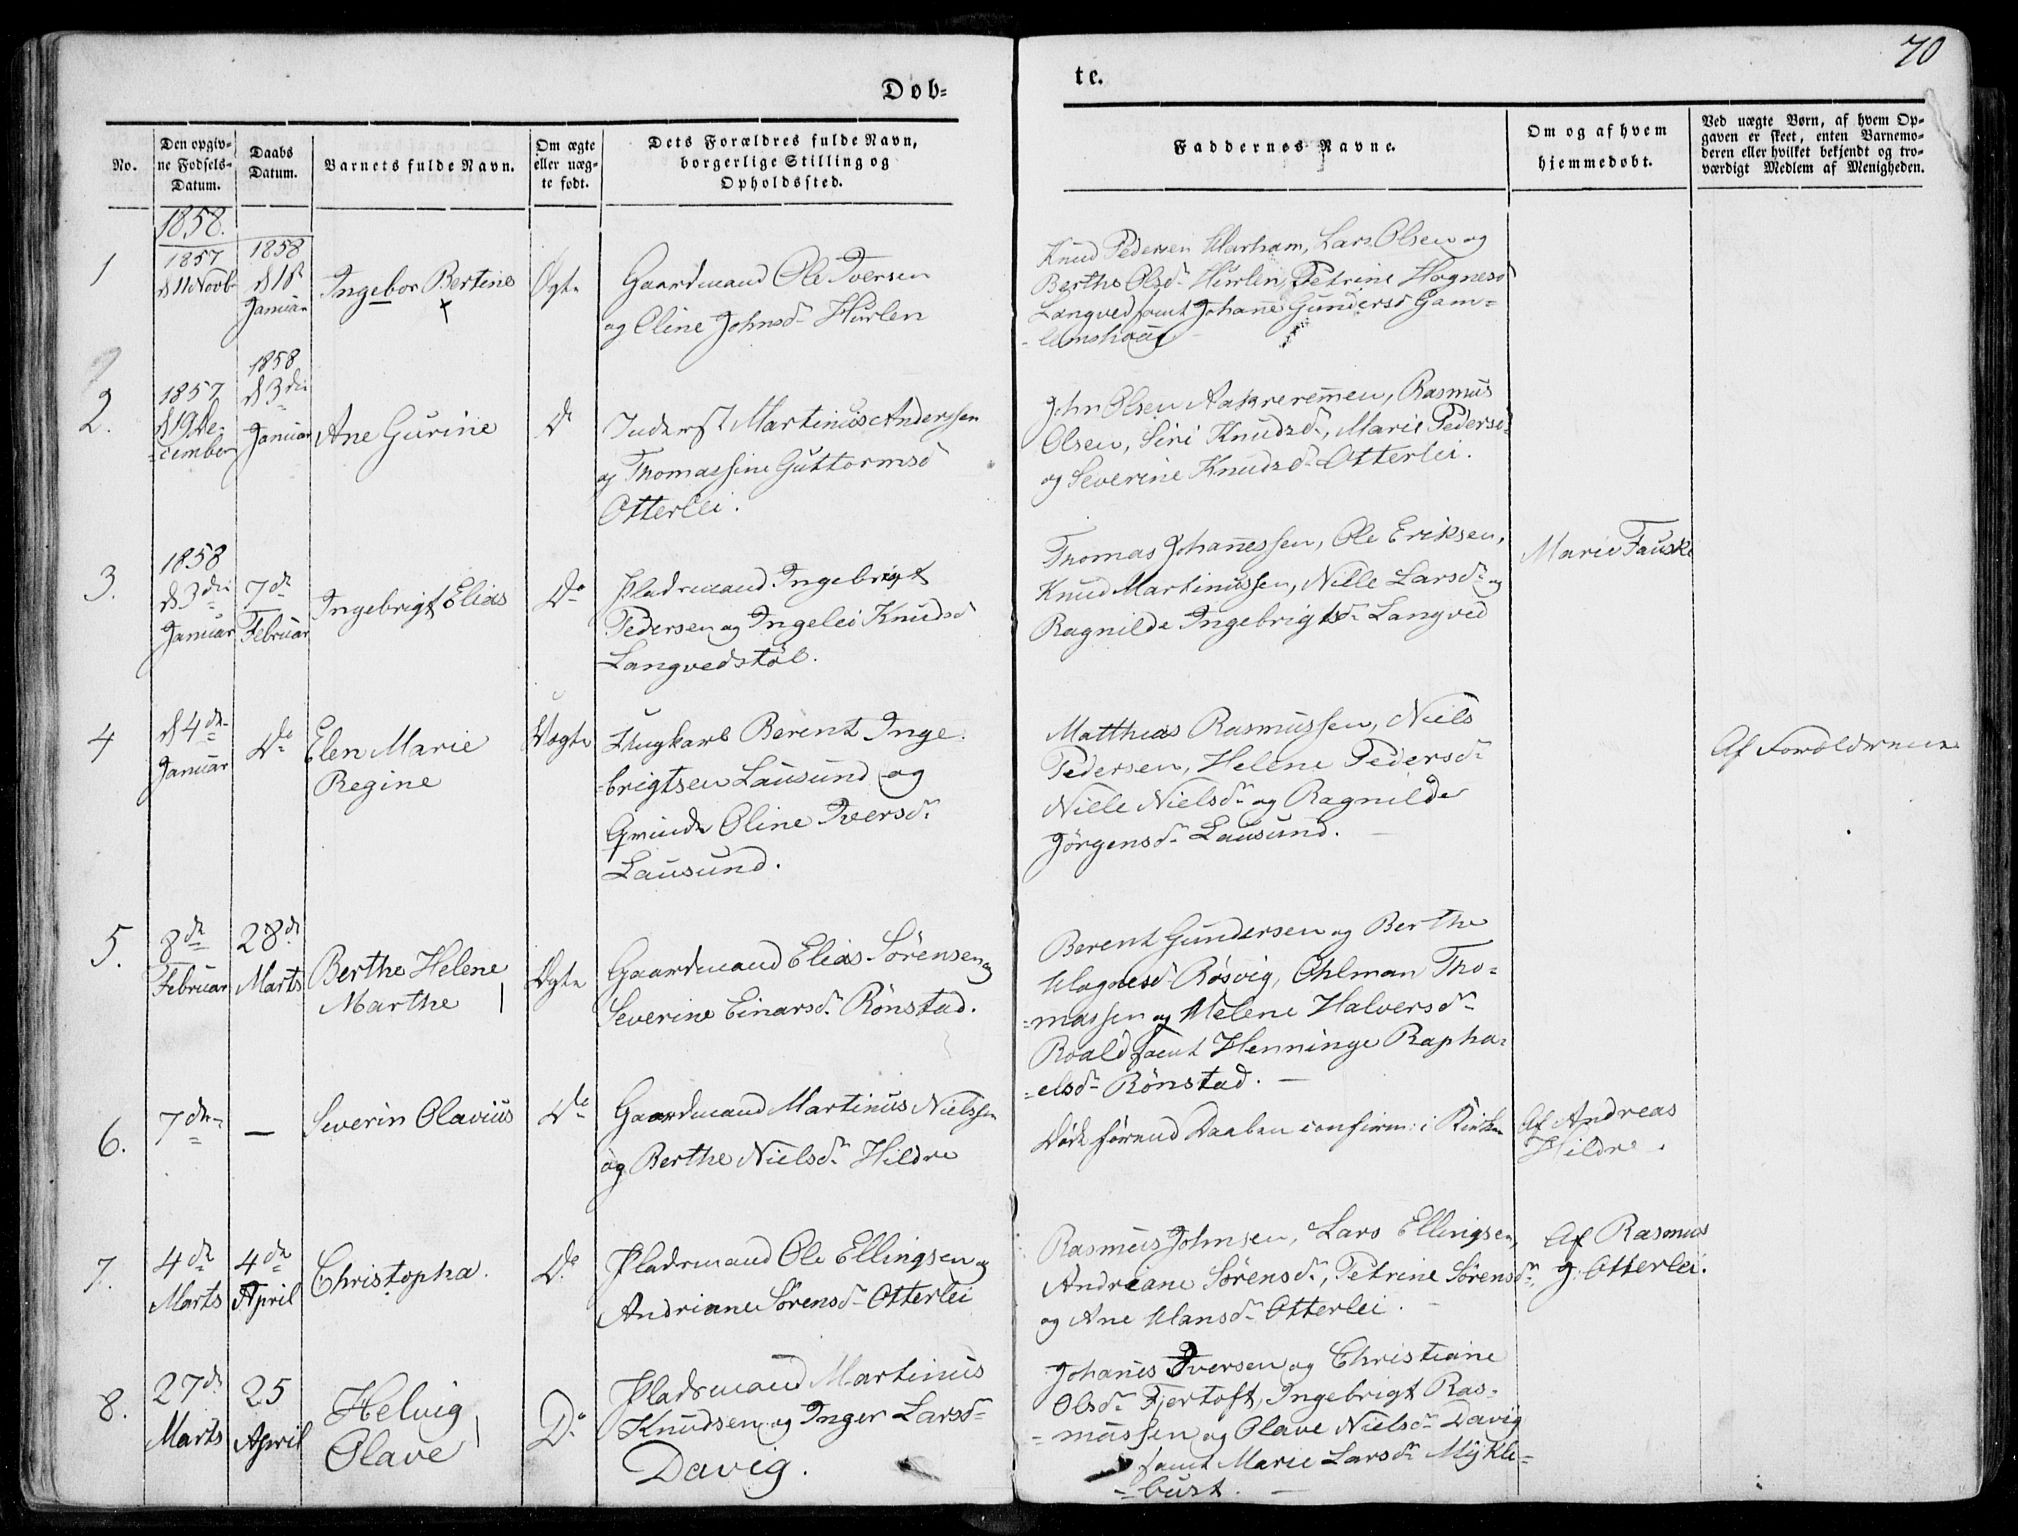 70
Døb-
te.
No.
Den opgiv-
ne Fødsels-
Datum.
Daabs
Datum.
Barnets fulde Navn.
Om ægte
eller uæg-
te født.
Dets Forældres fulde Navn,
borgerlige Stilling og
Opholdssted.
Faddernes Navne.
Om og af hvem
hjemmedøbt.
Ved uægte Børn, af hvem Op-
gaven er skeet, enten Barnemo-
deren eller hvilket bekjendt og tro-
værdigt Medlem af Menigheden.
1858.
1
1857
d 11 Novb
1858
d 1st
Januar
Ingebor Bertine
Ægte
Gaardmand Ole Iversen
og Oline Johnsd. Hurlen
Knud Pedersen Harham, Lars Olsen og
Berthe Olsd. Hurlen, Petrine Hognesd
Langved samt Johanne Gundersd Gam=
=
2.
1857
d 19 De-
=cember
1858
d 3die
Januar
Ane Gurine
Do
Inderst Martinus Anderssen
og Thomassine Guttormsd
Otterlei.
John Olsen Aakreremen, Rasmus
Olsen, Siri Knudsd., Marie Pedersd
og Severine Knudsd. Otterlei.
3.
1858
d 3die
Januar
7de
Februar
Ingebrigt Elias
Do
Pladsmand Ingebrigt
Pedersen og Ingelei Knudsd
Langvedstøl.
Thomas Johannessen, Ole Eriksen,
Knud Martinussen, Nille Larsd. og
Ragnilde Ingebrigtsd. Langved
Marie Fauske
4
d 4de
Januar
Do
Elen Marie
Regine
Uægte
Ungkarl Berent Inge-
=brigtsen Lausund og
Qvinde Oline Iversd.
Lausund.
Matthias Rasmussen, Niels
Pedersen, Helene Pedersd.
Nille Nielsd. og Ragnilde
Jörgensd. Lausund. —
Af Forældrene
5.
8de
Februar
28de
Marts
Berthe Helene
Marthe
Ægte
Gaardmand Elias Sörensen og
Severine Einarsd. Rönstad.
Berent Gundersen og Berthe
Hognesd. Røsvig, Ohlman Tho=
=massen og Helene Halversd.
Roald samt Henninge Rapha=
=elsd. Rönstad. —
6.
7de
—
Severin Olavius
Do
Gaardmand Martinus Nielssen
og Berthe Nielsd. Hildre
Døde førend Daaben confirm: i Kirken
Af Andreas
Hildre.
7.
4de
Marts
4de
April
Christopha.
Do
Pladsmand Ole Ellingsen og
Andriane Sörensd. Otterlei
Rasmus Johnsen, Lars Ellingsen,
Andriane Sörensd., Petrine Sörensd.
og Ane Hansd. Otterlei. —
Af Rasmus
J. Otterlei.
8.
27de
Marts
25
April
Helvig
Olave
Do
Pladsmand Martinus
Knudsen og Inger Larsd.
Davig.
Johanes Iversen og Christiane
Olsd. Fjertoft, Ingebrigt Ras=
=mussen og Olave Nielsd. Davig
samt Marie Larsd. Mykle=
=bust. —